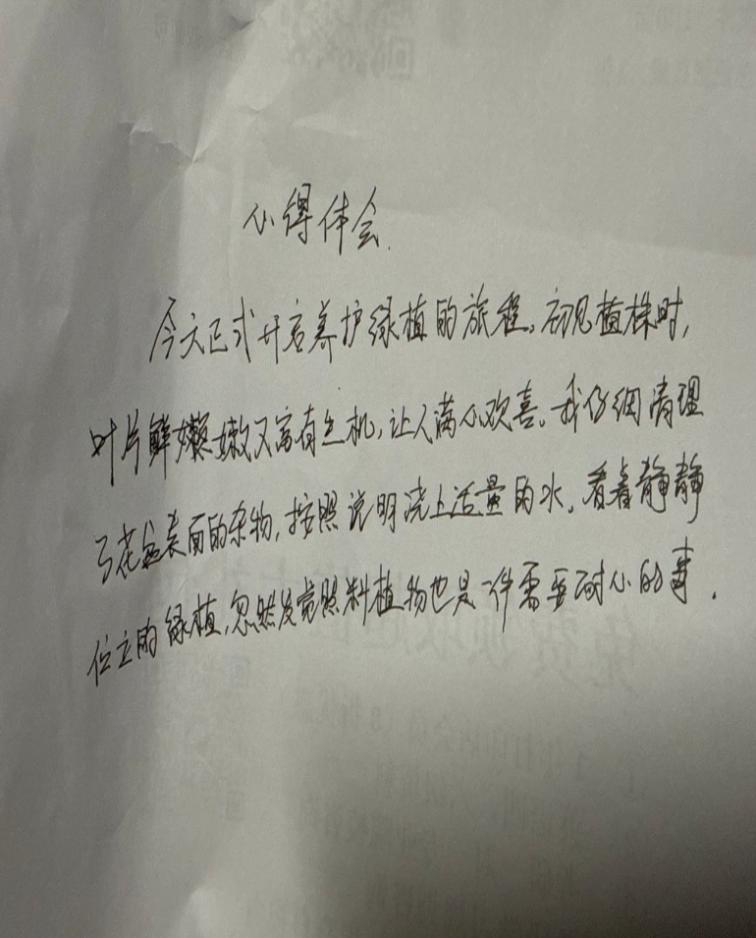 心得体会.
今天正式开启养护绿植的旅程。初见植株时,
叶片鲜嫩嫩又富有生机,让人满心欢喜。我仔细清理
了花盆表面的杂物,按照说明浇上适量的水。看着静静
位立的绿植,忽然发觉照料植物也是一件需要耐心的事.